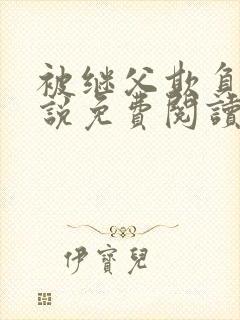 被继父欺负
說免費閱讀
伊寶兒